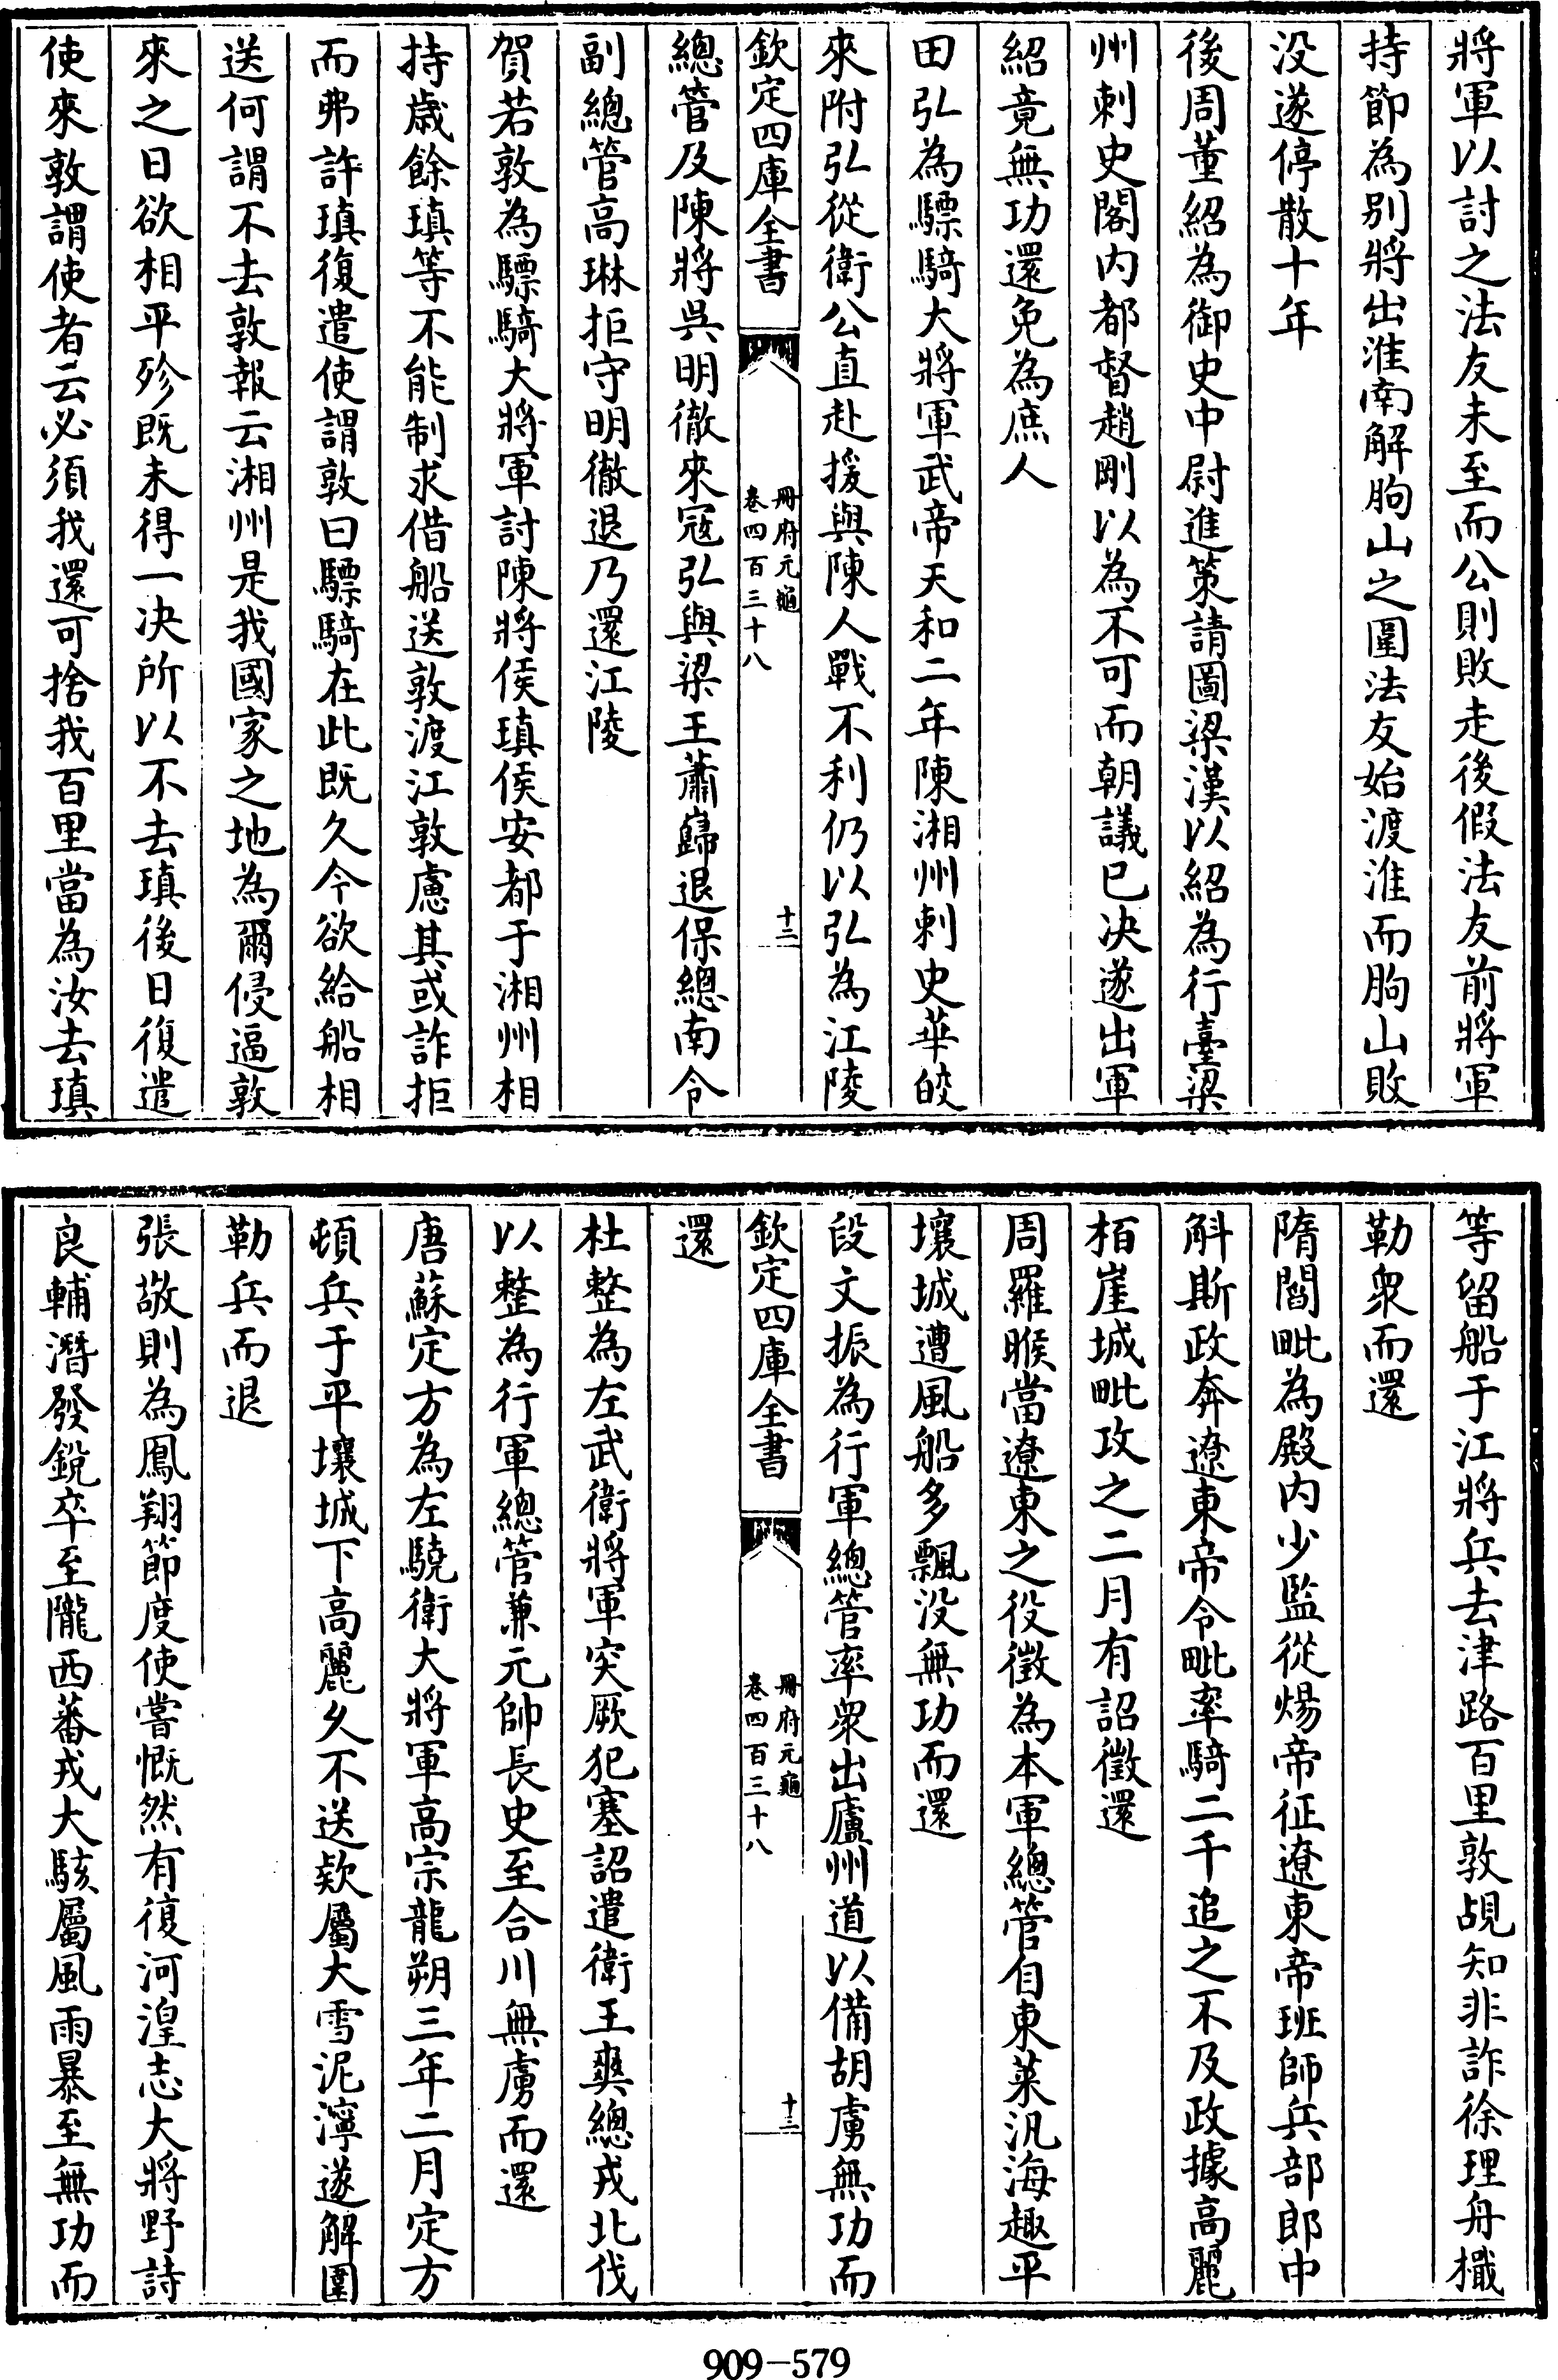 將軍以討之法友未至而公則敗走後假法友前將軍
持節為别將出淮南解朐山之圍法友始渡淮而朐山敗
没遂停散十年
後周董紹為御史中尉進策請圖梁漢以紹為行臺梁
州刺史閣内都督趙剛以為不可而朝議已决遂出軍
紹竟無功還免為庶人
田弘為驃騎大將軍武帝天和二年陳湘州刺史華皎
來附弘從衛公直赴援與陳人戰不利仍以弘為江陵
欽定四庫全書
冊府元龜
卷四百三十八
十二
總管及陳將吳明徹來寇弘與梁王蕭巋退保總南令
副總管高琳拒守明徹退乃還江陵
賀若敦為驃騎大將軍討陳將侯瑱侯安都于湘州相
持歲餘瑱等不能制求借船送敦渡江敦慮其或詐拒
而弗許瑱復遣使謂敦曰驃騎在此既久今欲給船相
送何謂不去敦報云湘州是我國家之地為爾侵逼敦
來之日欲相平殄既未得一决所以不去瑱後日復遣
使來敦謂使者云必須我還可捨我百里當為汝去瑱
等留船于江將兵去津路百里敦覘知非詐徐理舟檝
勒衆而還
隋閻毗為殿内少監從煬帝征遼東帝班師兵部郎中
斛斯政奔遼東帝令毗率騎二千追之不及政據高麗
栢崖城毗攻之二月有詔徵還
周羅睺當遼東之役徵為本軍總管自東萊汎海趣平
壤城遭風船多飄没無功而還
段文振為行軍總管率衆出廬州道以備胡虜無功而
欽定四庫全書
冊府元龜
卷四百三十八
十三
還
杜整為左武衛將軍突厥犯塞詔遣衛王爽總戎北伐
以整為行軍總管兼元帥長史至合川無虜而還
唐蘇定方為左驍衛大將軍高宗龍朔三年二月定方
頓兵于平壤城下高麗乆不送欵屬大雪泥濘遂解圍
勒兵而退
張敬則為鳳翔節度使嘗慨然有復河湟志大將野詩
良輔潛發銳卒至隴西蕃戎大駭屬風雨暴至無功而
909-579